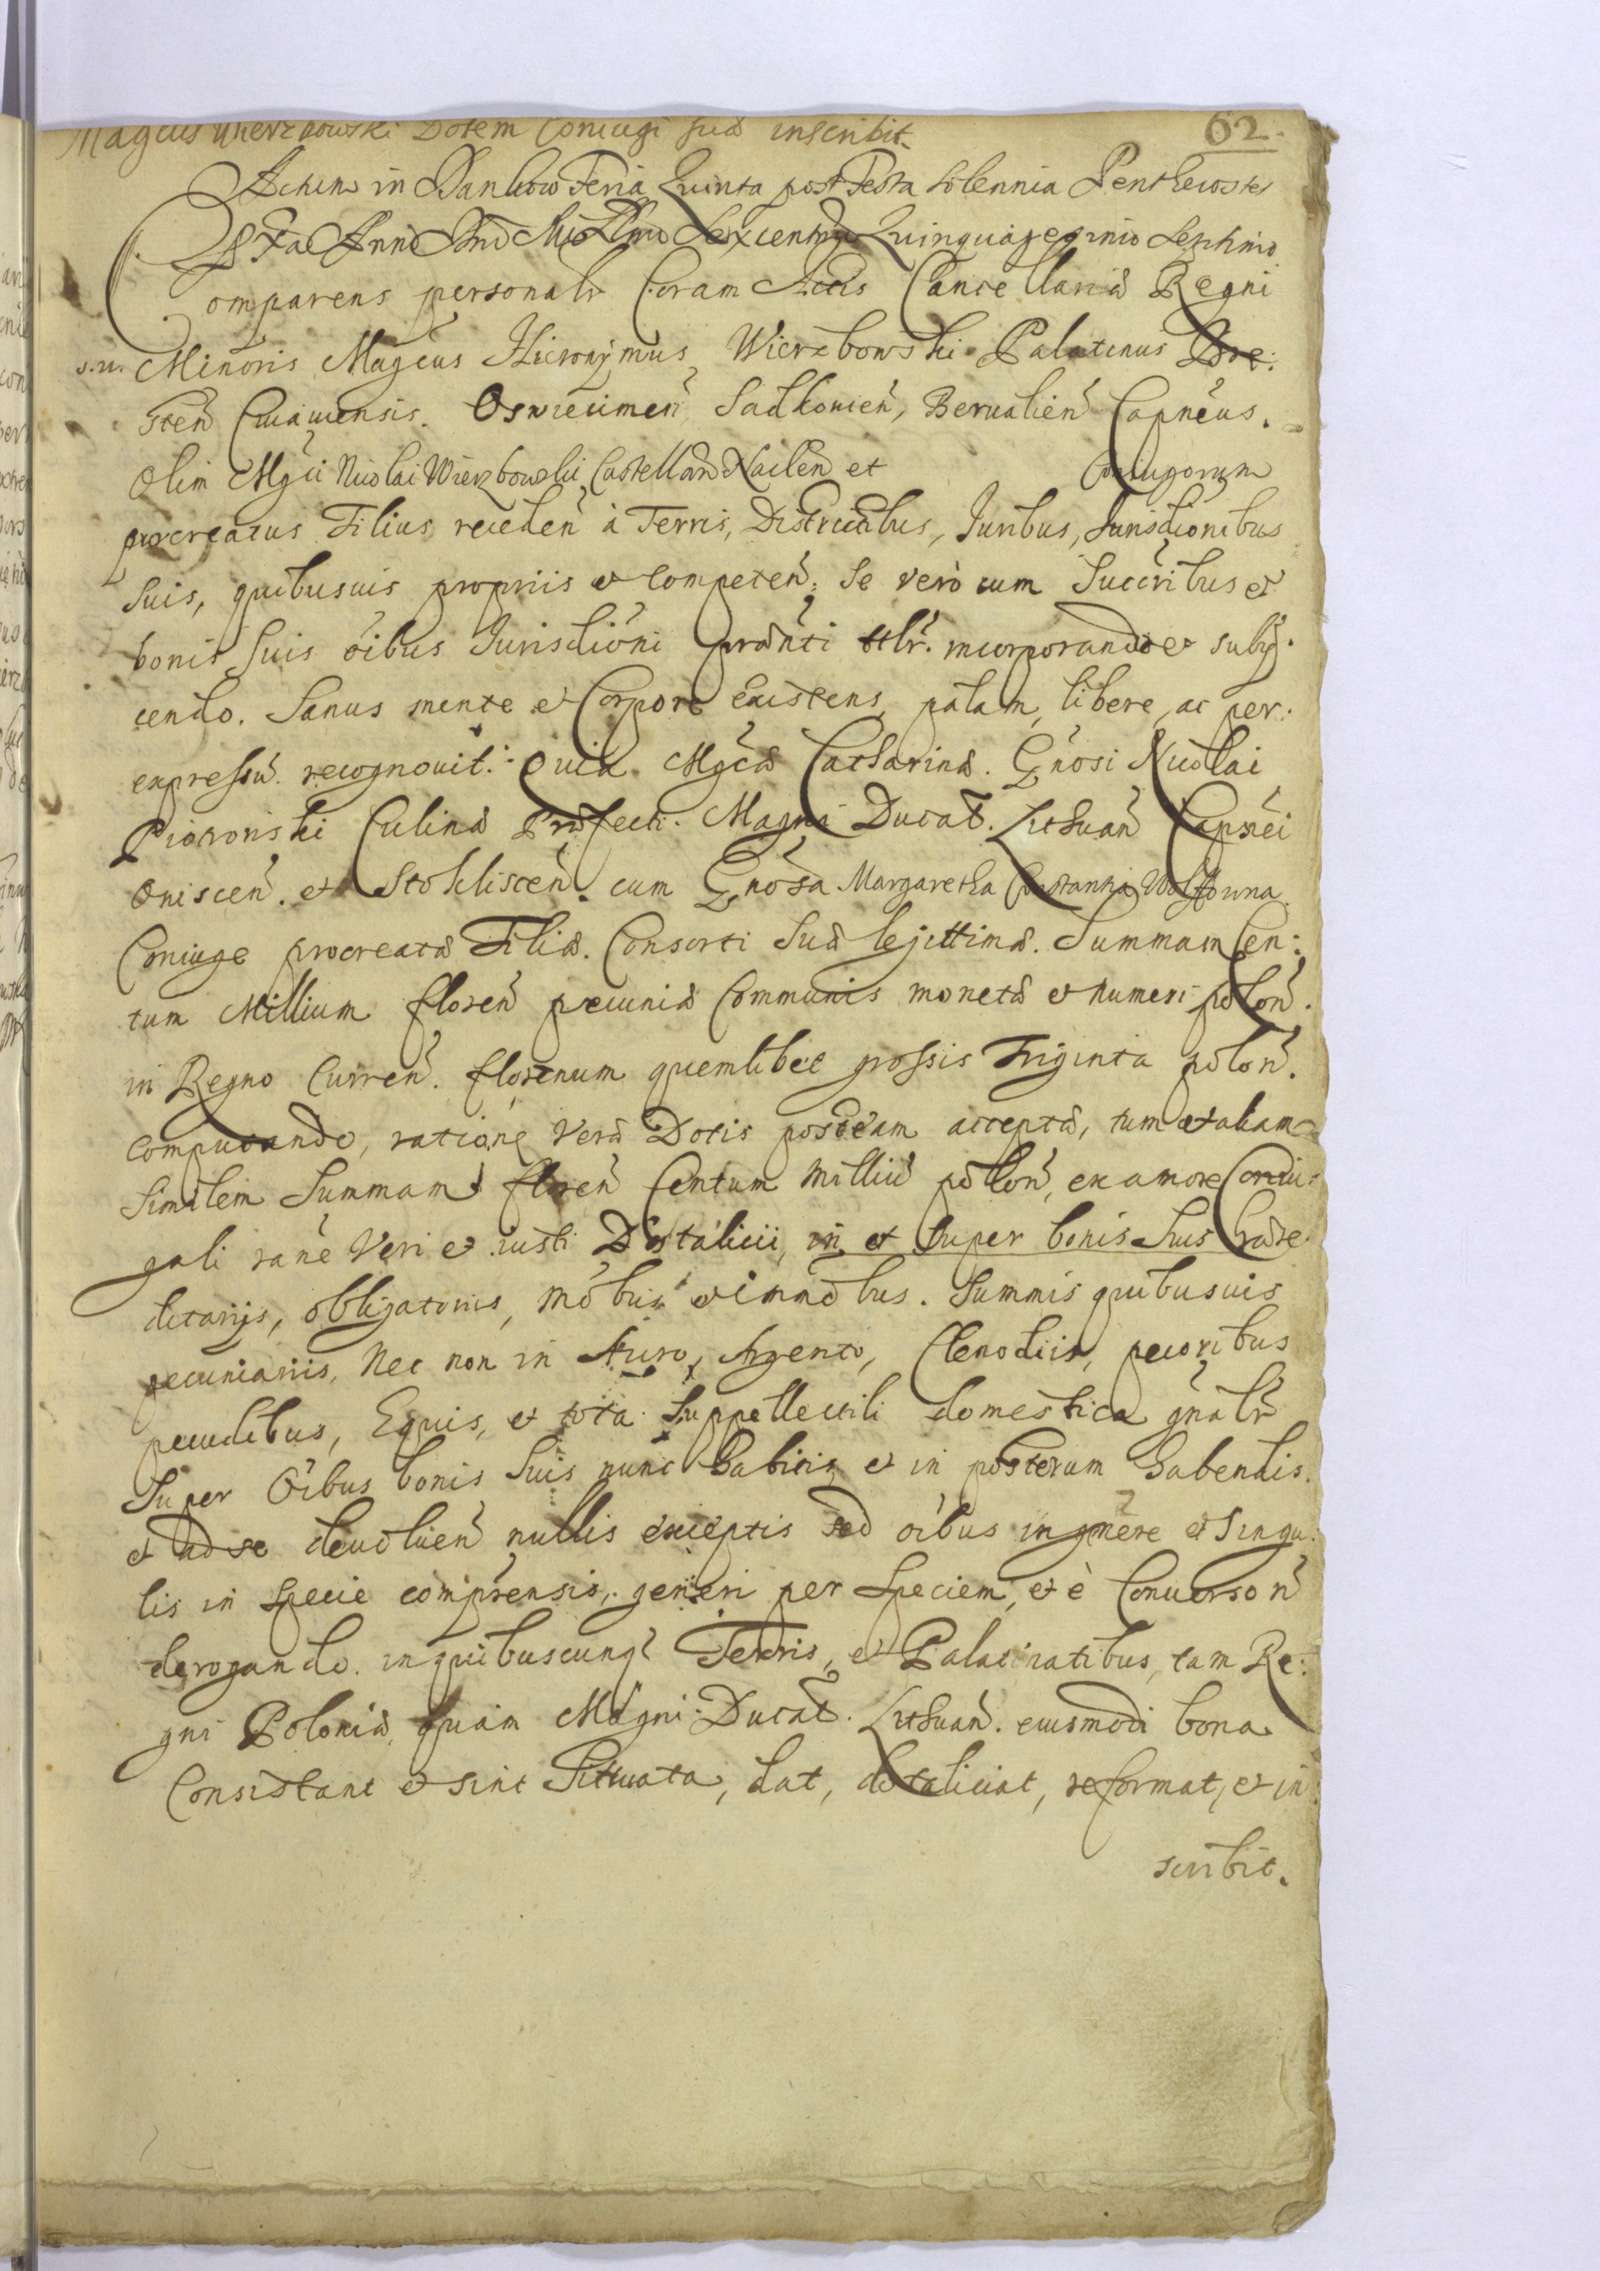 Magcus Wierzbowski Dotem Coniugi suæ inscribit.
62.
Actum in Dankow Feria Quinta post Festa solennia Penthecostes
Anno Dni Millmo Sexcentmo Quinquagesimo Septimo
Comparens personalr Coram Actis Cancellariæ Regni
Minoris Magcus Hieronymus Wierzbowski Palatinus Bre:
sten Cuiauiensis. Oswiecimen Sadkouien, Berualien Capneus.
Olim Mgci Nicolai Wierzbowski Castellani Naklen et Coniugorum
procreatus Filius receden à Terris, Districtibus, Juribus, Jurisdionibus
suis, quibusuis propriis et competen. Se verò cum Succribus et
bonis suis oibus Jurisdioni prænti incorporando et subij:
ciendo. Sanus mente et Corpore existens, palam, libere, ac per
expressũ recognouit. Quia Mgcæ Catharinæ. Gnosi Nicolai
Culinæ Præfecti. Magni Ducat. Lithuan Capnei
Oniscen. et Stokliscen. cum Gnosa Margaretha Constantia Wolffowna
Coniuge procreatæ Filiæ. Consorti Suæ legittimæ. Summam Cen:
tum Millium floren pecuniæ Communis monetæ et numeri polon.
in Regno Curren. florenum quemlibet grossis Triginta polon.
computando, ratione veræ Dotis acceptæ, tum et aliam
similem Summam floren Centum Milliũ pollon, ex amore Coniu:
gali rane Veri et iusti Dotalicii, in et super bonis suis hære:
ditarijs, obligatoriis, mobus et immobus. Summis quibusuis
pecuniariis, Nec non in Auro, Argento, Clenodiis, pecoribus
pecudibus, Equis, et tota Suppellectili domestica gnalr
Super Oibus bonis Suis nunc habitis et in posterum habendis.
et ad se deuoluen nullis exceptis sed oibus in gnere et singu:
lis in specie comprensis, generi per Speciem, et è Conuerso n
derogando. in quibuscunq Terris, et Palatinatibus, tam Re:
gni Poloniæ, quam Magni Ducat. Lithuan. eiusmodi bona
Consistant et sint Sittuata, dat, dotaliciat, reformat, et in
scribit.